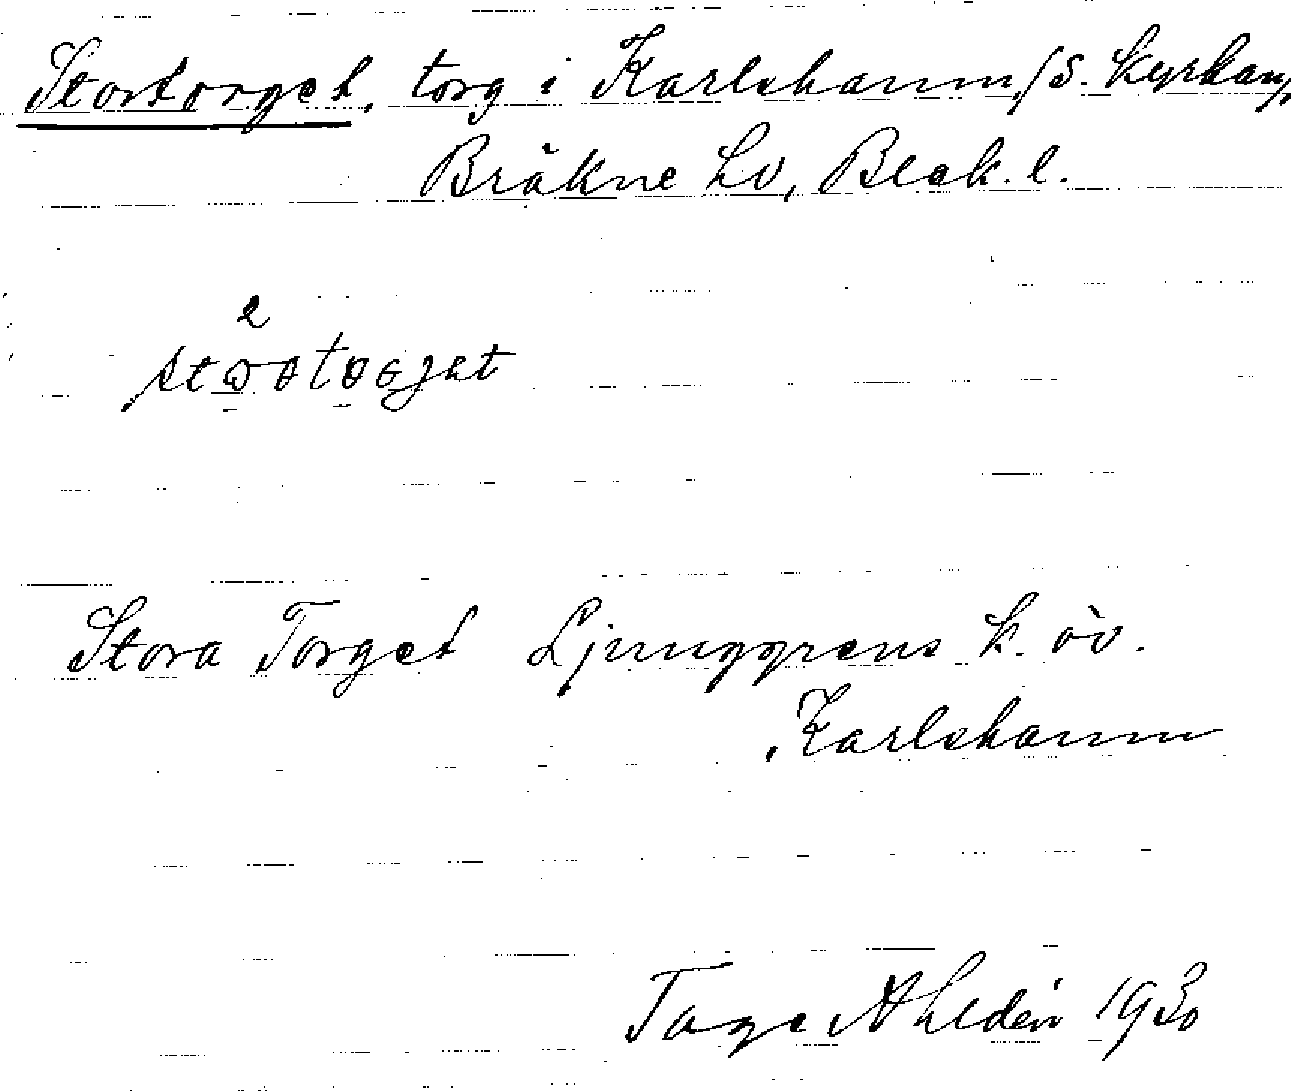 Stortorget, torg i Karlshamn, /s. kyrkan/,
Bräkne hd, Blek. l.
Stora Torget Ljunggrens k. öv.
Karlshamn
Tage Ahldén 1930